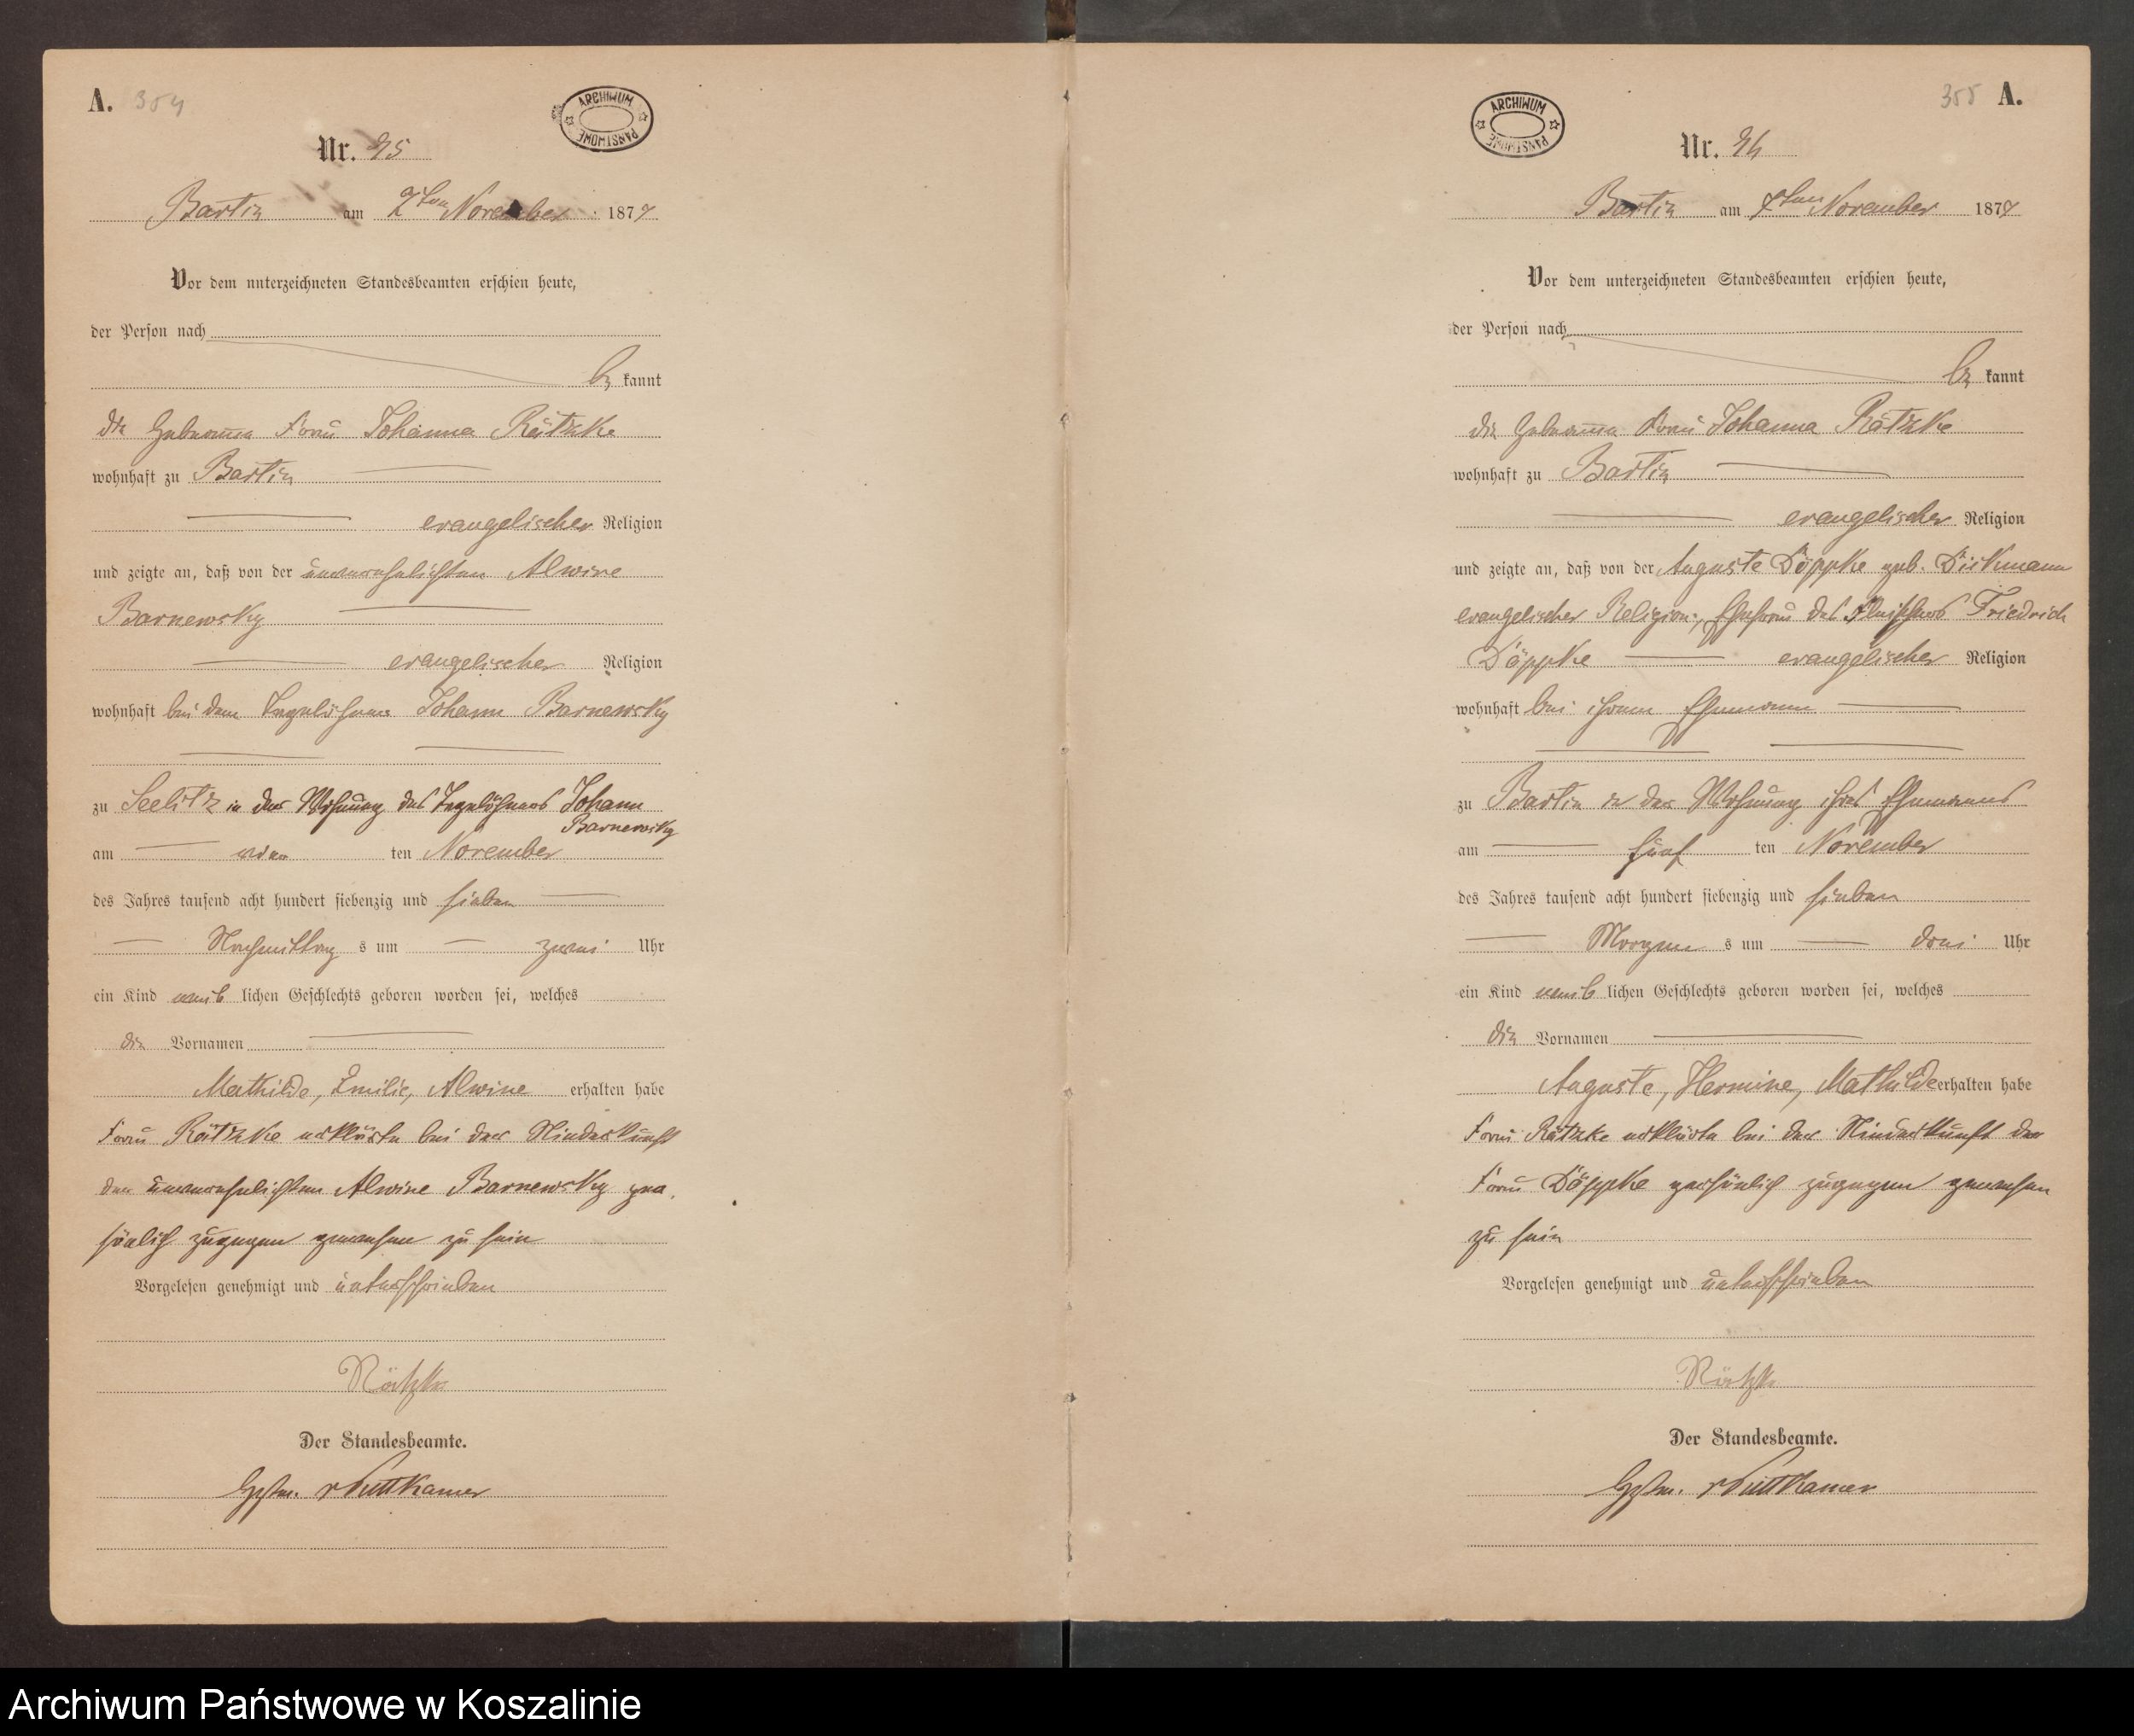 A. 354
ARCHIWUM PAŃSTWOWE
Nr. 95
Bartin am 2ten November 1877
Vor dem unterzeichneten Standesbeamten erschien heute,
der Person nach
be kannt
die Hebamme Frau Johanna Rätzke
wohnhaft zu Bartin
evangelischer Religion
und zeigte an, daß von der unverehelichten Alwine
Barnewsky
evangelischer Religion
wohnhaft bei dem Tagelöhner Johann Barnewsky
zu Seelitz in der Wohnung des Tagelöhners Johann
Barnewsky
am ersten November
des Jahres tausend acht hundert siebenzig und sieben
Nachmittag s um zwei Uhr
ein Kind weib lichen Geschlechts geboren worden sei, welches
die Vornamen
Mathilde, Emilie, Alwine erhalten habe
Frau Rätzke erklärte bei der Niederkunft
der unverehelichten Alwine Barnewsky per
sönlich zugegen gewesen zu sein
Vorgelesen genehmigt und unterschrieben
Rätzke
Der Standesbeamte.
vPuttkamer
355 A.
ARCHIWUM PAŃSTWOWE
Nr. 96
Bartin am 7ten November 1877
Vor dem unterzeichneten Standesbeamten erschien heute,
der Person nach
be kannt
die Hebamme Frau Johanna Rätzke
wohnhaft zu Bartin
evangelischer Religion
und zeigte an, daß von der Auguste Döppke geb. Dickmann
evangelischer Religion, Ehefrau des Fleischers Friedrich
Döppke evangelischer Religion
wohnhaft bei ihrem Ehemann
zu Bartin in der Wohnung ihres Ehemannes
am fünf ten November
des Jahres tausend acht hundert siebenzig und sieben
Morgen s um drei Uhr
ein Kind weib lichen Geschlechts geboren worden sei, welches
die Vornamen
Auguste, Hermine, Mathilde erhalten habe
Frau Rätzke erklärte bei der Niederkunft der
Frau Döppke persönlich zugegen gewesen
zu sein
Vorgelesen genehmigt und unterschrieben
Rätzke
Der Standesbeamte.
vPuttkamer
Archiwum Państwowe w Koszalinie